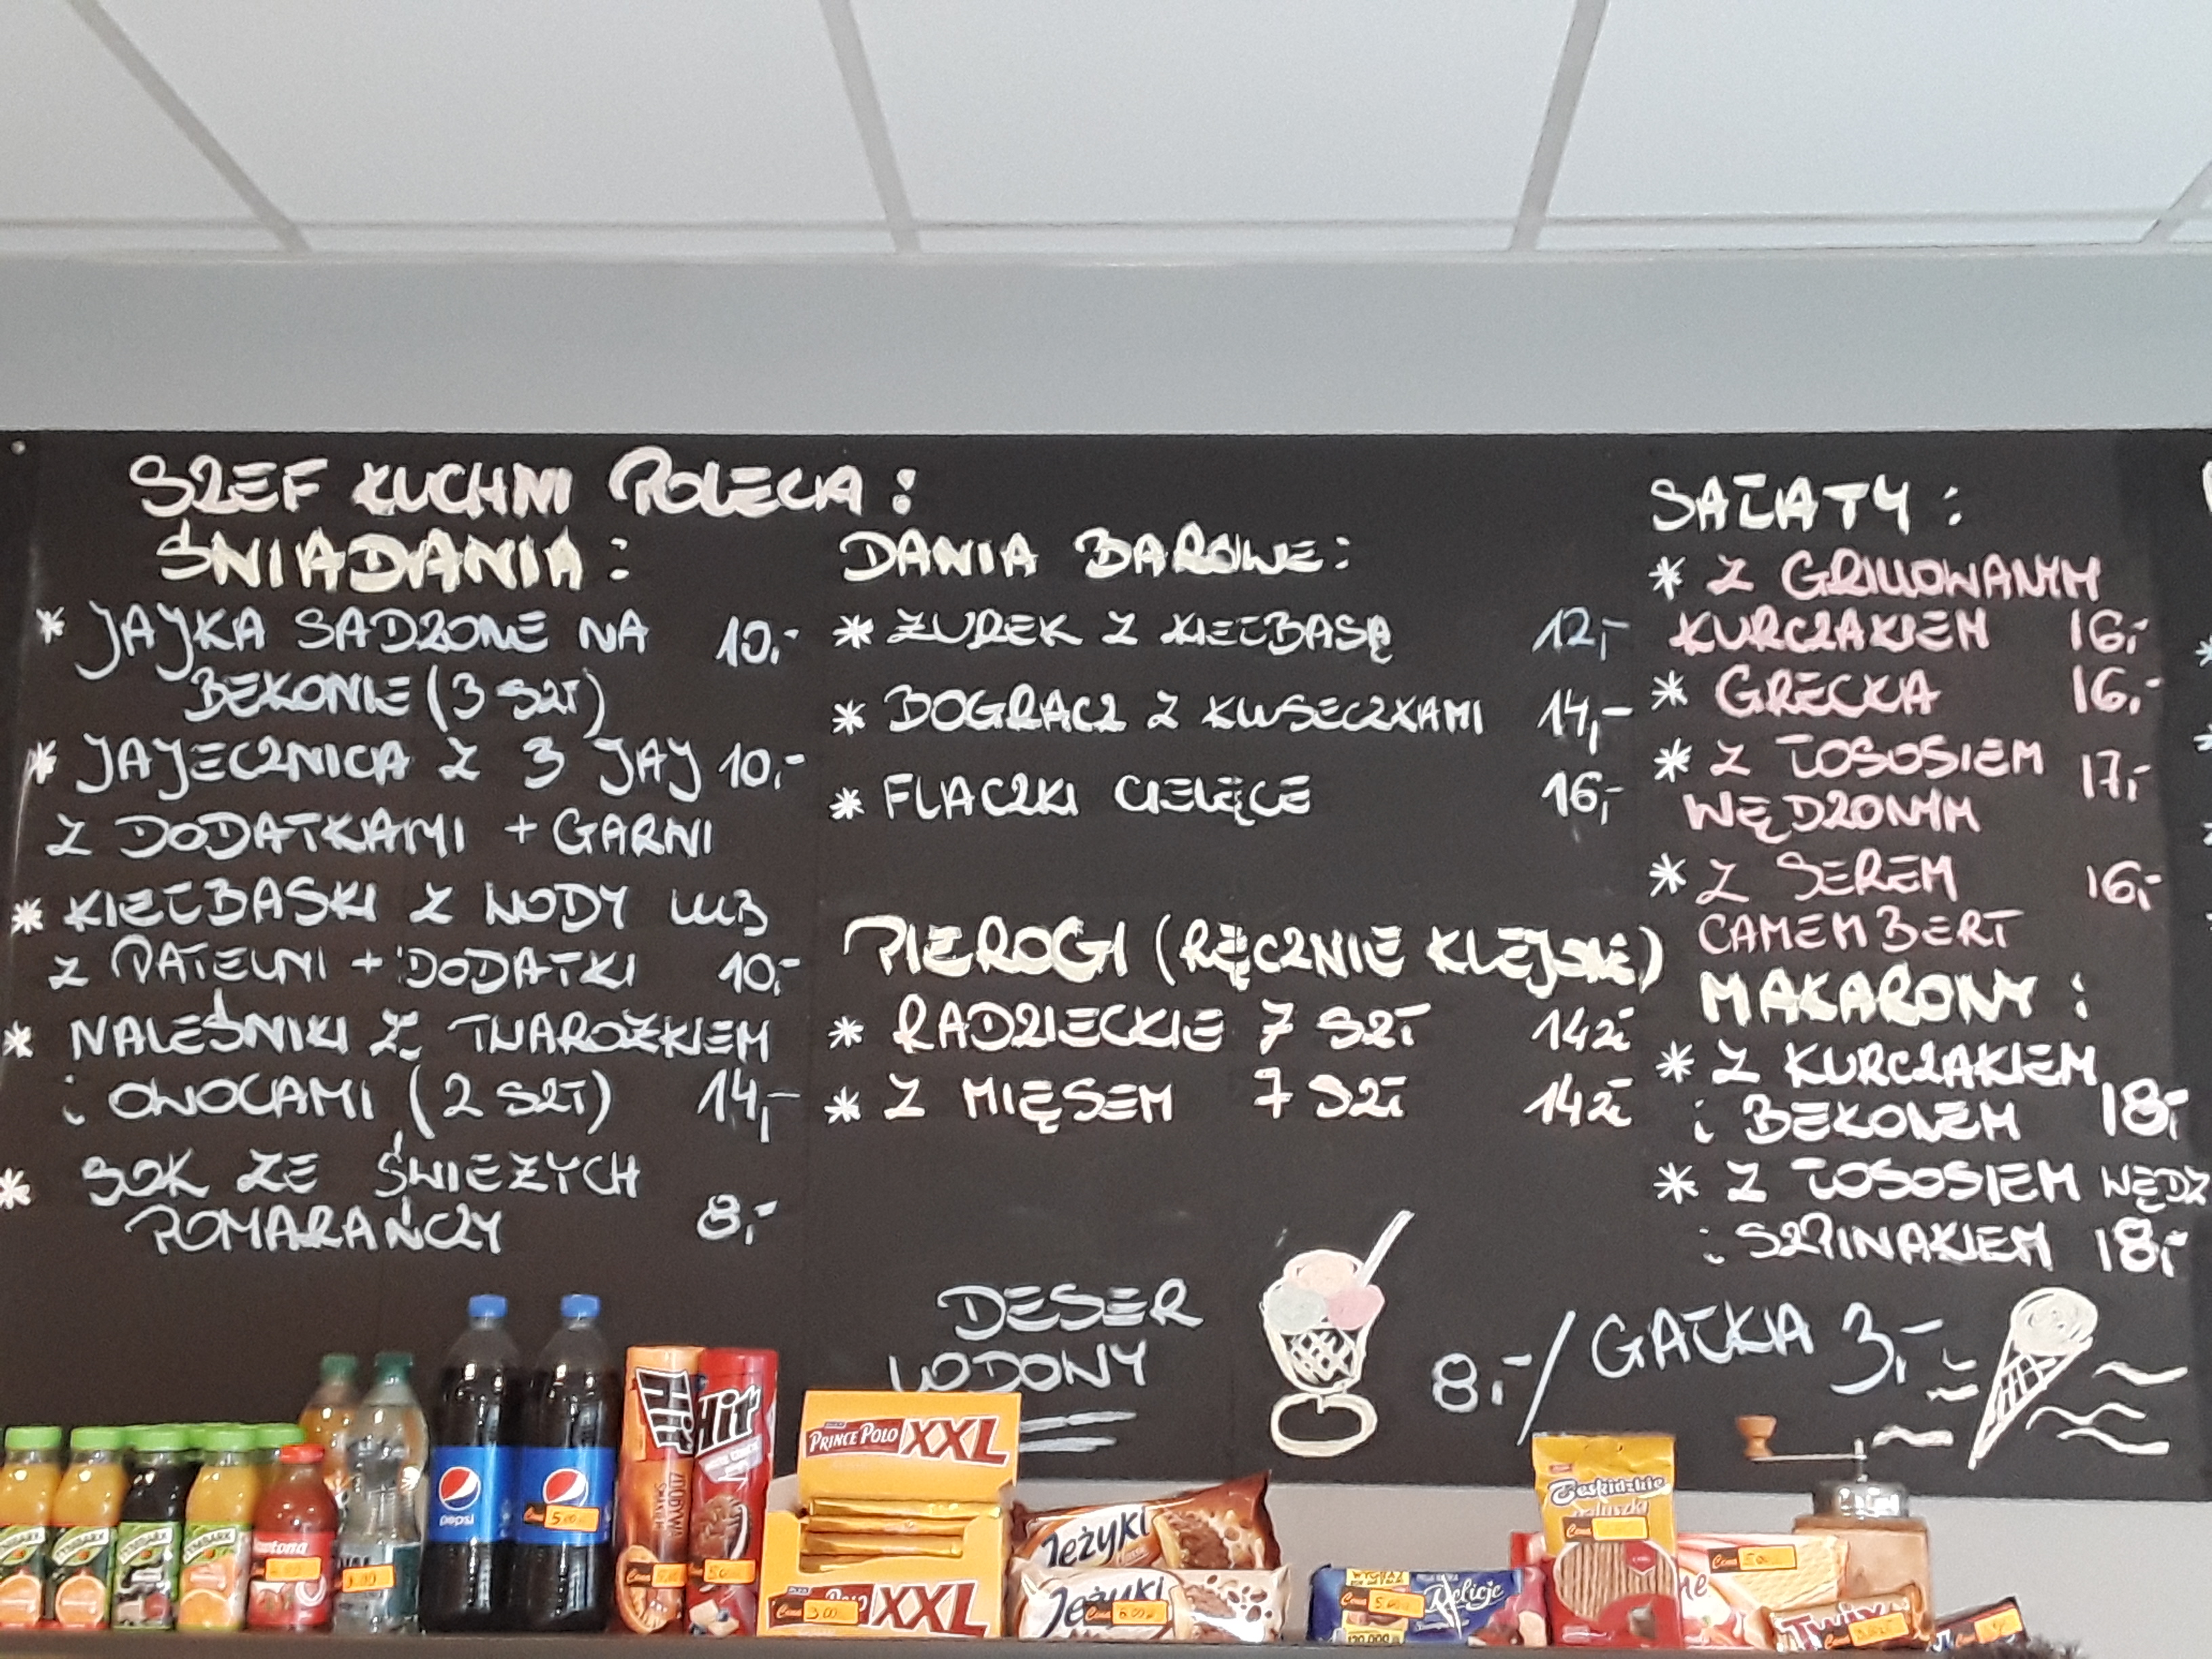 SZEF KUCHNI POLECA :
ŚNIADANIA :
* JAJKA SADZONE NA 10,-
BEKONIE (3 SZT)
* JAJECZNICA Z 3 JAJ 10,-
Z DODATKAMI + GARNI
* KIEŁBASKI Z WODY LUB
Z PATELNI + DODATKI 10,-
* NALEŚNIKI Z TWAROŻKIEM
i OWOCAMI (2 SZT) 14,-
* SOK ZE ŚWIEŻYCH
POMARAŃCZY 8,-
DANIA BAROWE :
* ŻUREK Z KIEŁBASĄ 12,-
* BOGRACZ Z KLUSECZKAMI 14,-
* FLACZKI CIELĘCE 16,-
PIEROGI (RĘCZNIE KLEJONE)
* RADZIECKIE 7 SZT 14zł
* Z MIĘSEM 7 SZT 14zł
SAŁATY :
* Z GRILLOWANYM
KURCZAKIEM 16,-
* GRECKA 16,-
* Z ŁOSOSIEM 17,-
WĘDZONYM
* Z SEREM 16,-
CAMEMBERT
MAKARONY :
* Z KURCZAKIEM
i BEKONEM 18,-
* Z ŁOSOSIEM WĘDZ
i SZPINAKIEM 18,-
DESER
LODONY
8,-/GAŁKA 3,-
TYMBARK
TYMBARK
TYMBARK
TYMBARK
pepsi
Cena 5.00
Hit
Hit
PRINCE POLO XXL
XXL
Cena 3.00
Jeżyki
Jeżyki
Cena 6.00
Delicje
Cena 5.00
Beskidzkie
Cena
Twix